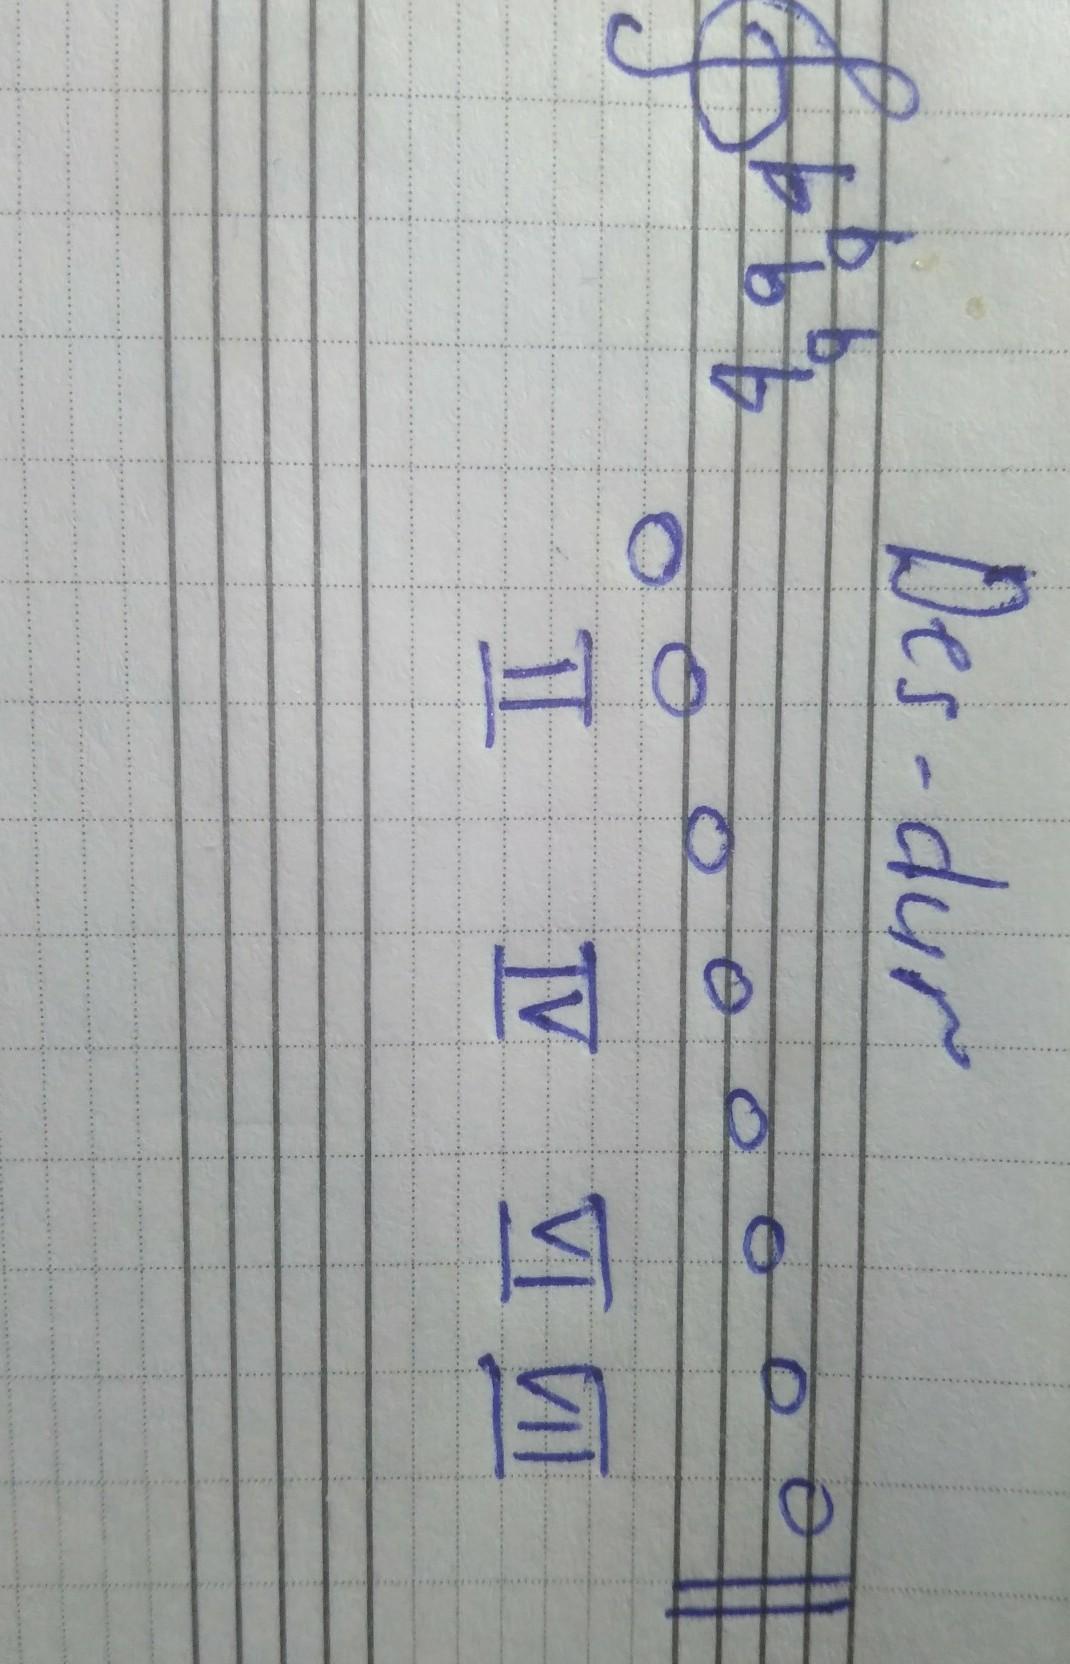 Des-dur
II IV VI VII